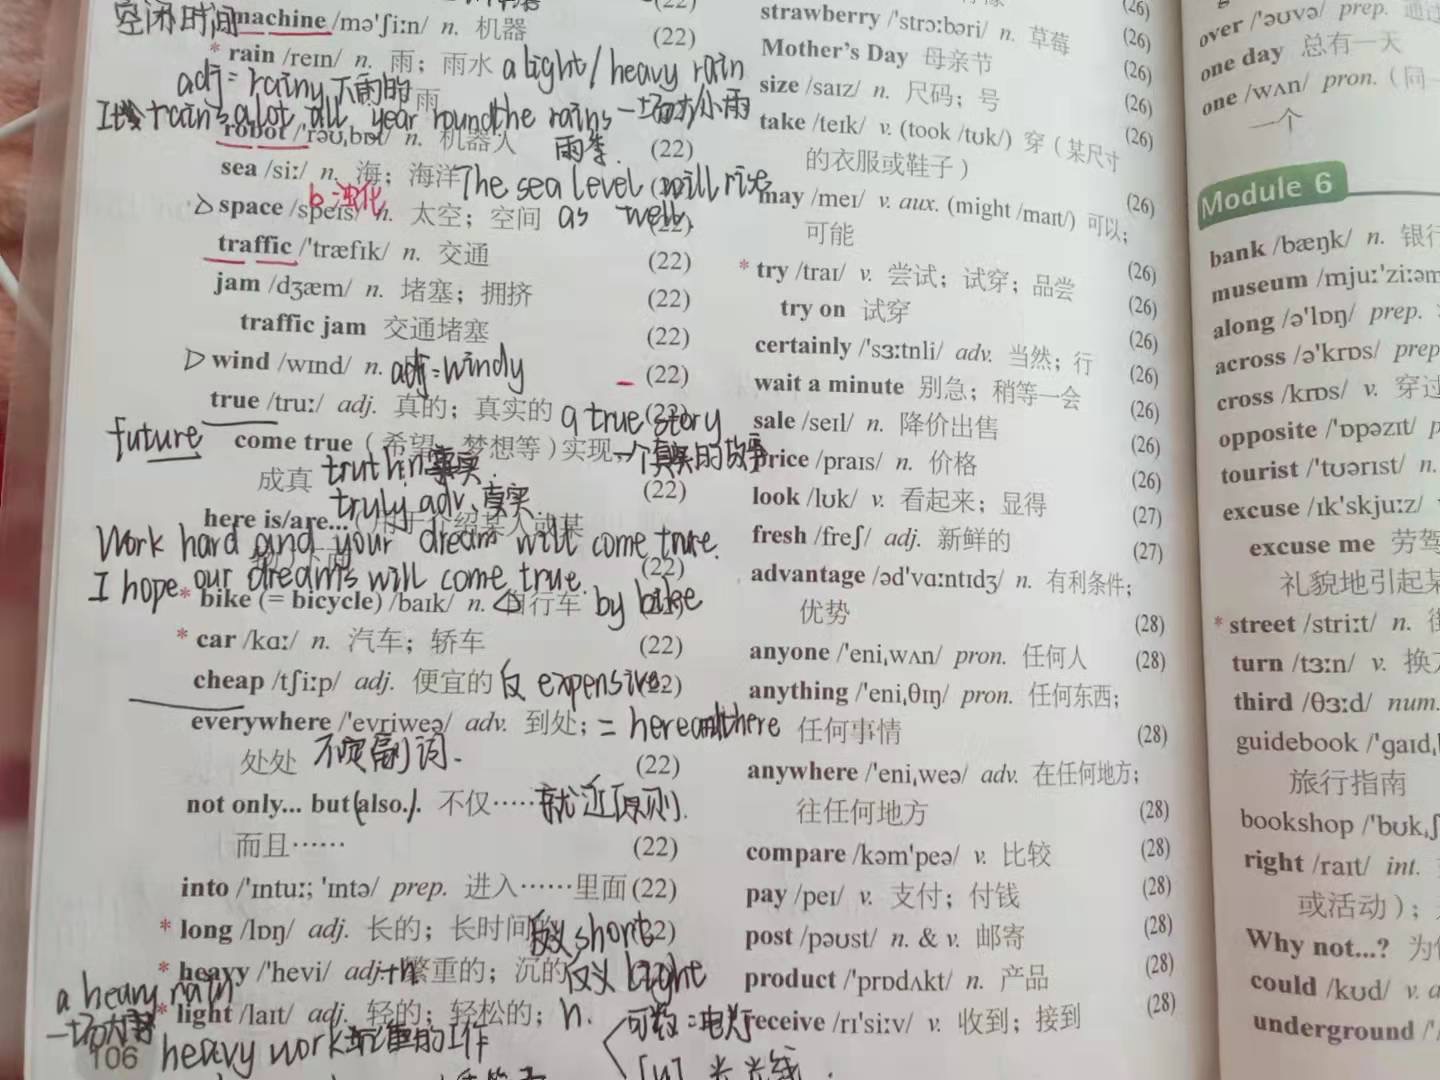 空闲时间
machine /mə'ʃiːn/ n. 机器 (22)
* rain /reɪn/ n. 雨；雨水 a light/heavy rain
adj = rainy 下雨的 雨
rains a lot all year round the rains 一场大/小雨
robot /'rəʊˌbɒt/ n. 机器人 雨季. (22)
sea /siː/ n. 海；海洋 The sea level will rise
b浊化
space /speɪs/ n. 太空；空间 as well. (22)
traffic /'træfɪk/ n. 交通 (22)
jam /dʒæm/ n. 堵塞；拥挤 (22)
traffic jam 交通堵塞 (22)
wind /wɪnd/ n. adj = windy (22)
true /truː/ adj. 真的；真实的 a true story (22)
future
come true（希望、梦想等）实现 一个真实的故事
成真 truth n. 事实. (22)
truly adv. 真实
here is/are...（用于介绍某人或某
Work hard and your dream will come true.
(22)
I hope our dreams will come true.
* bike (= bicycle) /baɪk/ n. 自行车 by bike
* car /kɑː/ n. 汽车；轿车 (22)
cheap /tʃiːp/ adj. 便宜的 反 expensive (22)
everywhere /'evriweə/ adv. 到处； = here and there
处处 不定副词. (22)
not only... but (also.). 不仅…… 就近原则.
而且…… (22)
into /'ɪntuː; 'ɪntə/ prep. 进入……里面 (22)
* long /lɒŋ/ adj. 长的；长时间的 反义 short (22)
* heavy /'hevi/ adj. 繁重的；沉的 反义 light
a heavy rain
* light /laɪt/ adj. 轻的；轻松的； n. 可数 = 电灯
一场大雨
106 heavy work 繁重的工作
[U] 光 光线.
(26)
strawberry /'strɔːbəri/ n. 草莓 (26)
Mother's Day 母亲节 (26)
size /saɪz/ n. 尺码；号 (26)
take /teɪk/ v. (took /tʊk/) 穿（某尺寸 (26)
的衣服或鞋子）
may /meɪ/ v. aux. (might /maɪt/) 可以； (26)
可能
* try /traɪ/ v. 尝试；试穿；品尝 (26)
try on 试穿 (26)
certainly /'sɜːtnli/ adv. 当然；行 (26)
wait a minute 别急；稍等一会 (26)
sale /seɪl/ n. 降价出售 (26)
price /praɪs/ n. 价格 (26)
look /lʊk/ v. 看起来；显得 (26)
fresh /freʃ/ adj. 新鲜的 (27)
advantage /əd'vɑːntɪdʒ/ n. 有利条件； (27)
优势
anyone /'eniˌwʌn/ pron. 任何人 (28)
anything /'eniˌθɪŋ/ pron. 任何东西； (28)
任何事情 (28)
anywhere /'eniˌweə/ adv. 在任何地方；
往任何地方 (28)
compare /kəm'peə/ v. 比较 (28)
pay /peɪ/ v. 支付；付钱 (28)
post /pəʊst/ n. & v. 邮寄 (28)
product /'prɒdʌkt/ n. 产品 (28)
receive /rɪ'siːv/ v. 收到；接到 (28)
over /'əʊvə/ prep. 通过
one day 总有一天
one /wʌn/ pron.（同一
一个
Module 6
bank /bæŋk/ n. 银行
museum /mjuː'ziːəm
along /ə'lɒŋ/ prep.
across /ə'krɒs/ prep
cross /krɒs/ v. 穿过
opposite /'ɒpəzɪt/ p
tourist /'tʊərɪst/ n.
excuse /ɪk'skjuːz/
excuse me 劳驾
礼貌地引起某
* street /striːt/ n. 街
turn /tɜːn/ v. 换方
third /θɜːd/ num.
guidebook /'ɡaɪd
旅行指南
bookshop /'bʊkˌʃ
right /raɪt/ int.
或活动）；
Why not...? 为什
could /kʊd/ v. a
underground /'